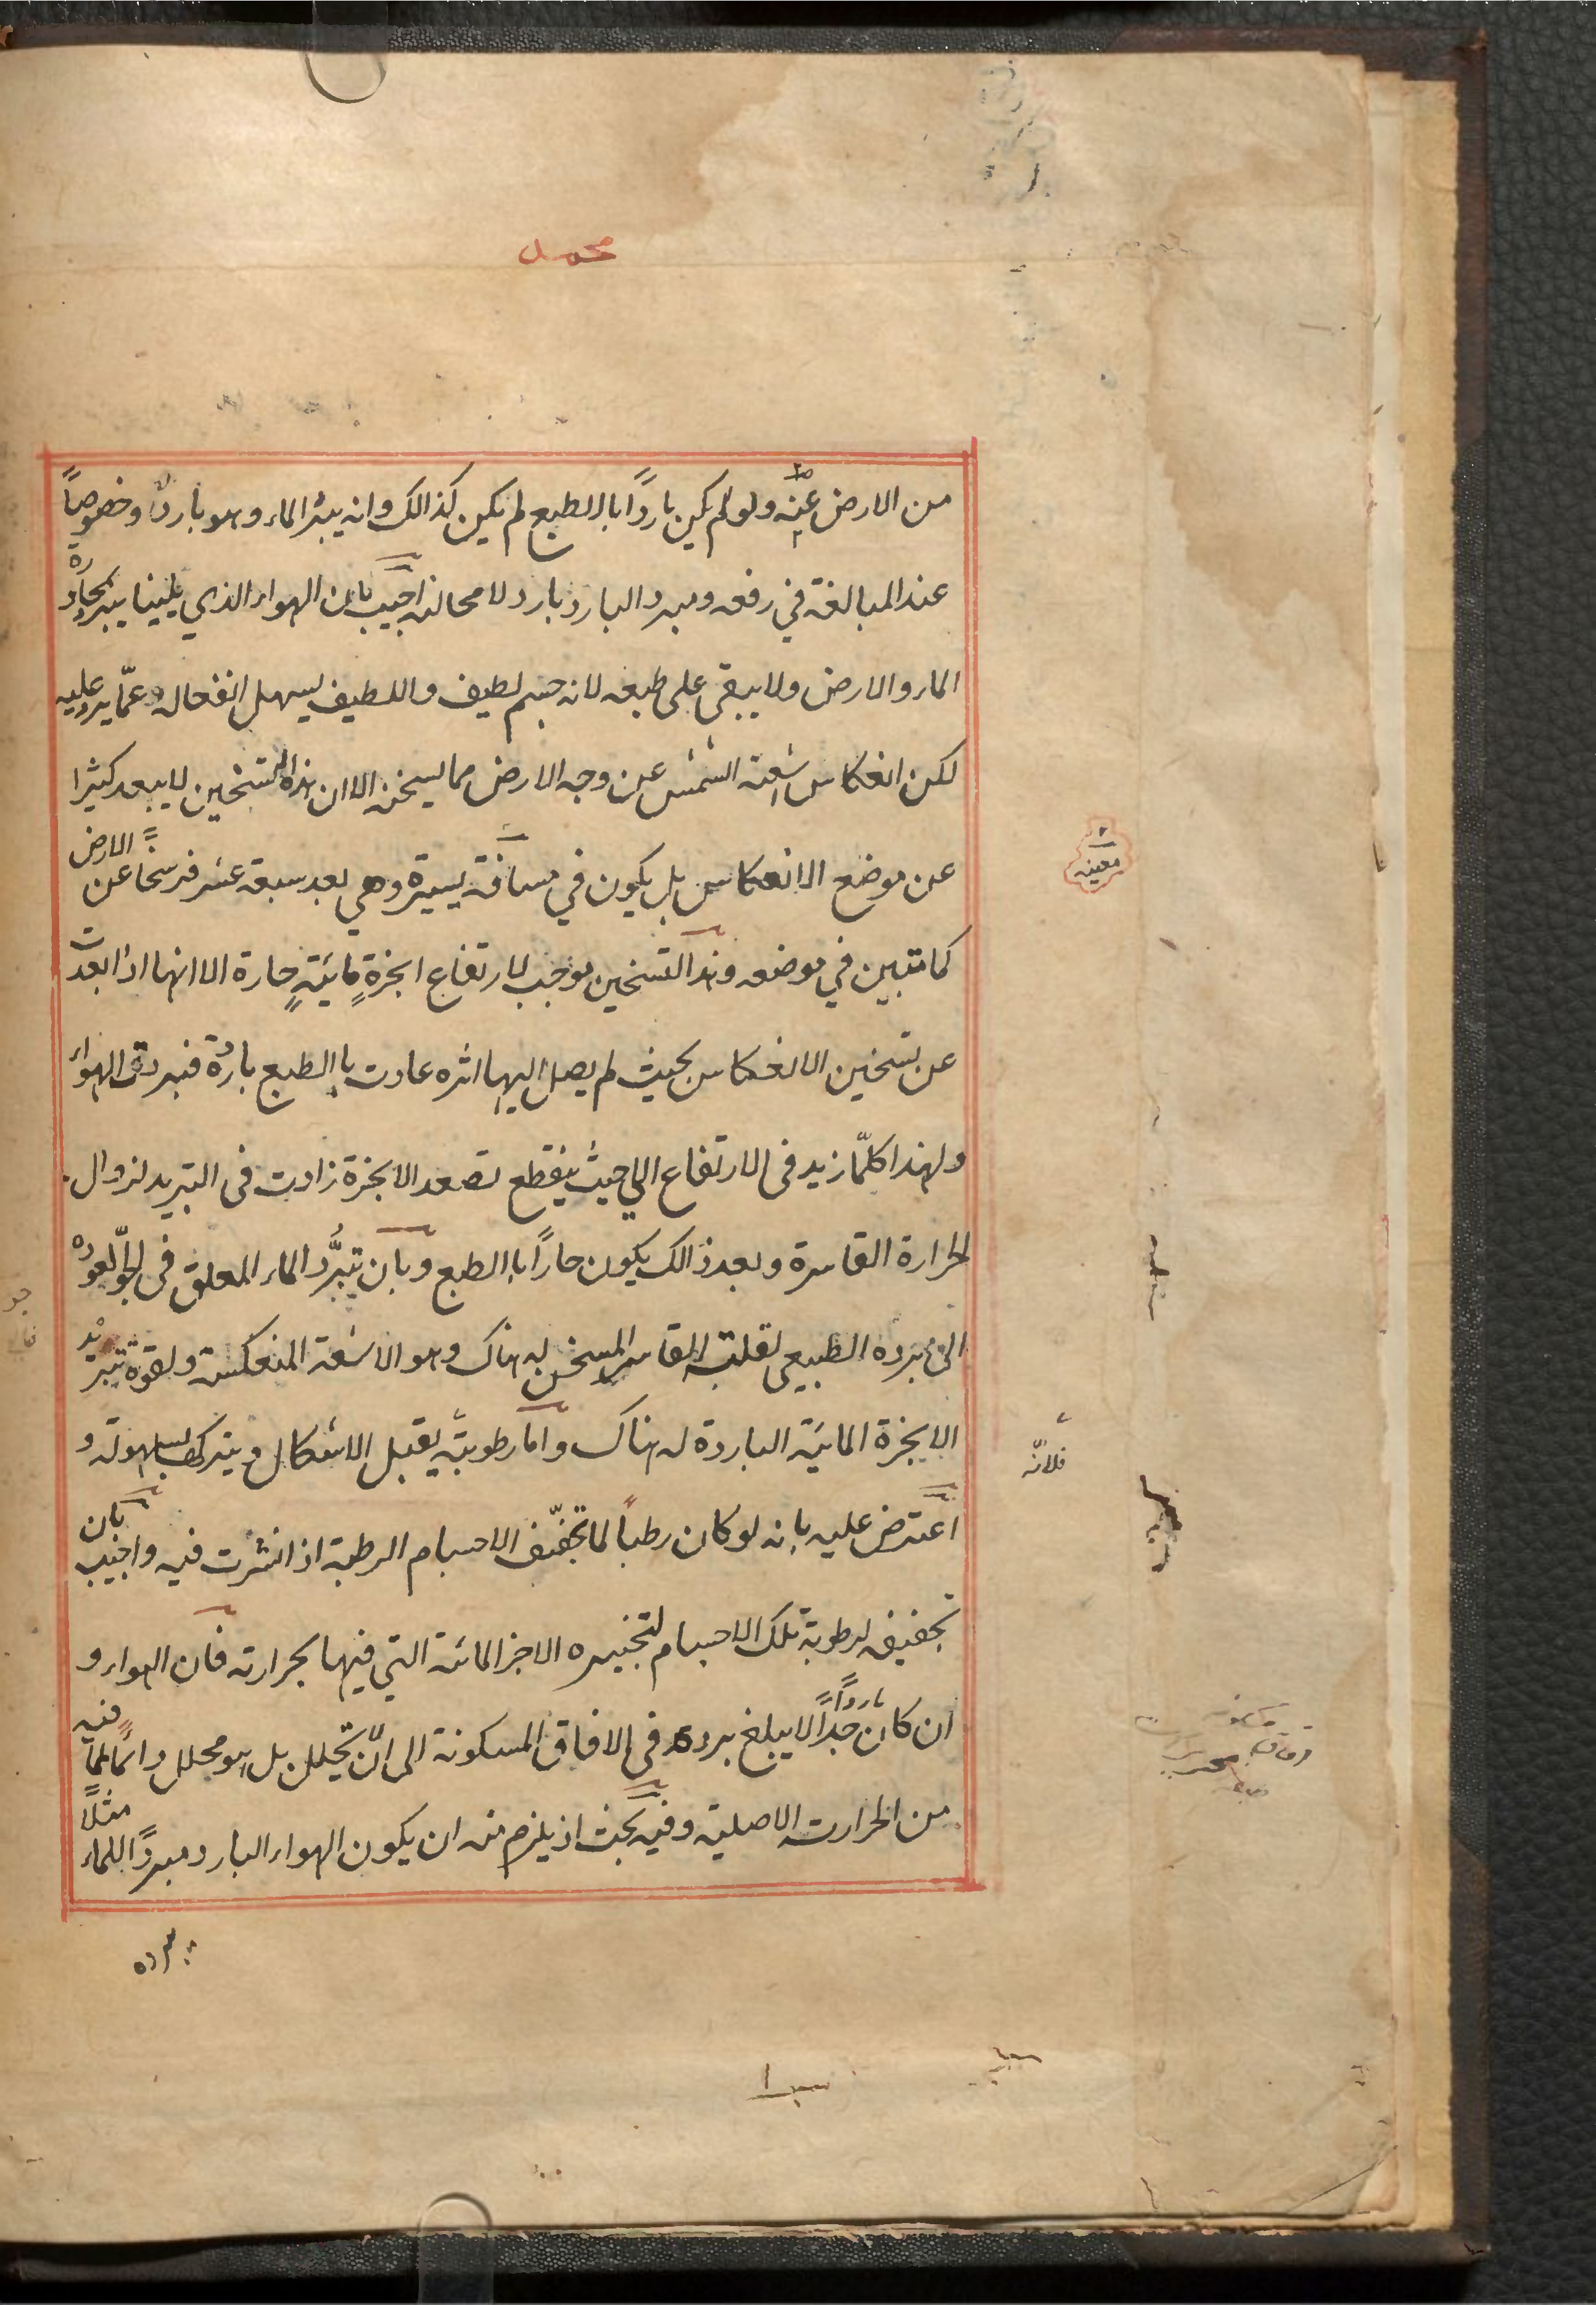 محمل
من الارض عنه ولو لم يكن باردًا با لطبع لم يكن كذالك وانه يبرّد الماء وهو بارد وخصوصاً
عند المبالغة في رفعه ومبرد البارد بارد لا محالة اجيب بان الهواء الذي يلينا يبرد بمجاورة
الماء والارض ولا يبقى على طبعه لانه جسم لطيف واللطيف يسهل انفعاله عمّا يرد عليه
لكن انعكاس اشعة الشمس عن وجه الارض مما يسخنه الا ان هذا التسخين لا يبعد كثيرا
عن موضع الانعكاس بل يكون في مسافة يسيرة وهي بعد سبعة عشر فرسخا عن الارض
كما تبين في موضعه وهذا التسخين موجب لارتفاع ابخرةٍ مائيّةٍ حارة الا انها اذا بعدت
عن تسخين الانعكاس بحيث لم يصل اليها اثره عادت با لطبع باردة فبردت الهواء
ولهذا كلّما زيد فى الارتفاع الي حيث ينقطع تصعد الابخرة زادت فى التبريد لزوال
الحرارة القاسرة وبعد ذالك يكون حاراً با لطبع وبان تبرُّد الماء المعلق فى الجوّ لعوده
الى برده الطبيعي لقلة القاسر المسخن له هناك وهو الاشعة المنعكسة ولقوة تبريد
الابخرة المائيّة الباردة له هناك واما رطوبتّه يقبل الاشكال ويتركها بسهولة و
اعترض عليه بانه لو كان رطباً لما تجفّف الاجسام الرطبة اذا نشرت فيه واجيب بان
تجفيفه لرطوبة تلك الاجسام لتبخيره الاجزا المائية التي فيها بحرارته فان الهواء و
ان كان باردًا جدًا لا يبلغ برده فى الافاق المسكونة الى ان يحلل بل هو محلل دائماً لما فيه
من الحرارت الاصلية وفيه بحث اذ يلزم منه ان يكون الهواء البارد مبردًا للماء مثلًا
معينه
فلانّه